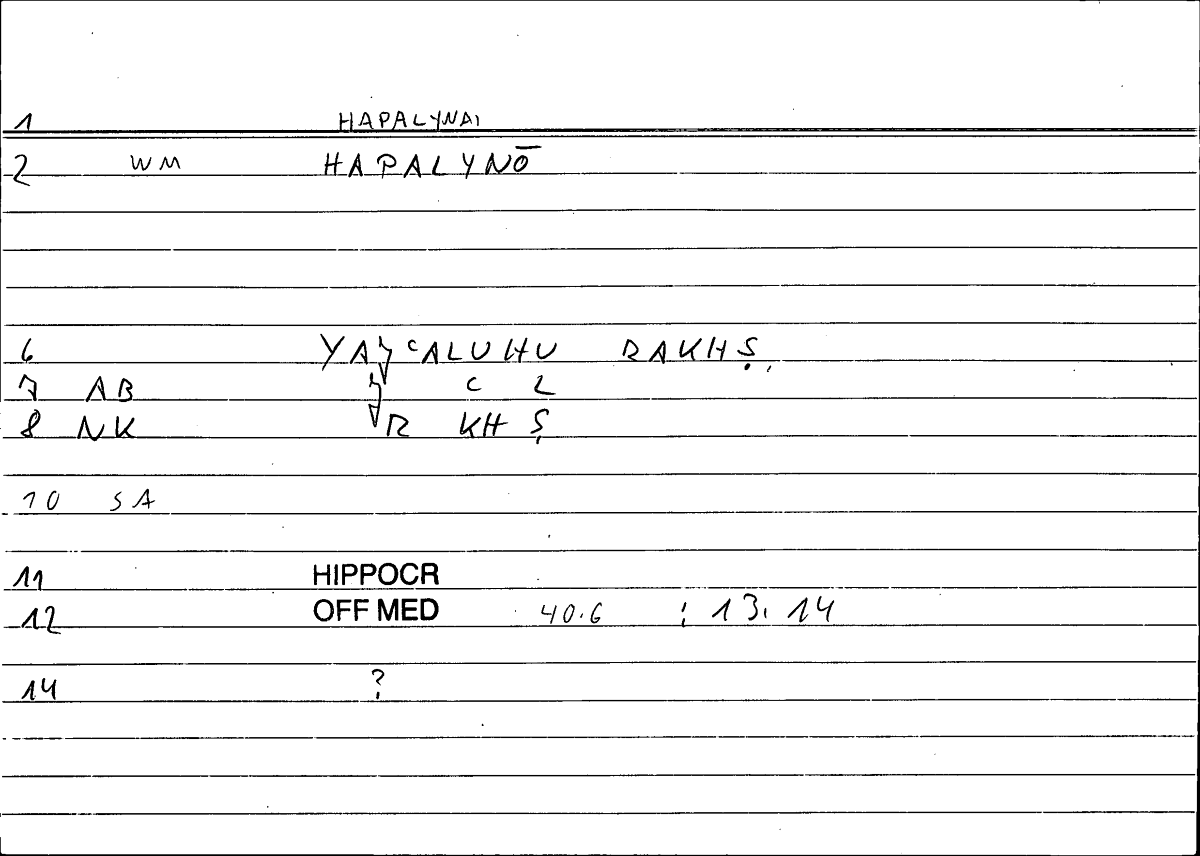 1 HAPALYNAI
2 WM HAPALYNŌ
6 YAǧʿALUHU RAKHṢ
7 AB ǧ ʿ L
8 NK R KH Ṣ
10 SA
11 HIPPOCR
12 OFF MED 40.6 : 13. 14
14 ?